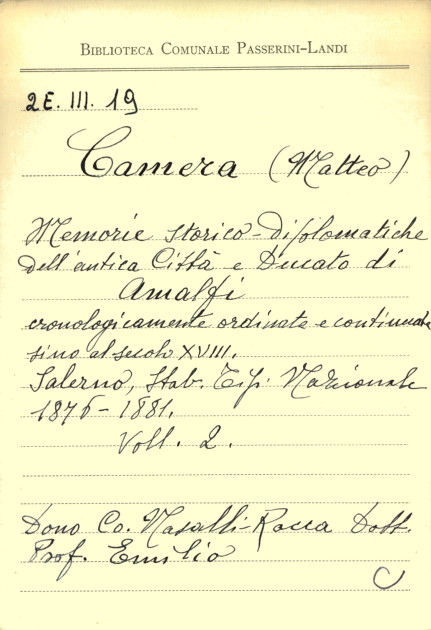 BIBLIOTECA COMUNALE PASSERINI-LANDI
2E. III. 19
Camera (Matteo)
Memorie storico-diplomatiche
dell'antica Città e Ducato di
Amalfi
cronologicamente ordinate e continuate
sino al secolo XVIII.
Salerno, Stab. Tip. Nazionale
1876-1881.
Voll. 2.
Dono Co. Nasalli-Rocca Dott.
Prof. Emilio
C